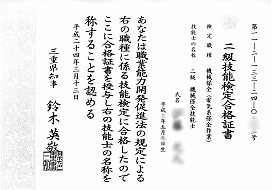 第一一ー二ー一三三ー一四ー〇 号
二級技能検定合格証書
検定職種 機械保全(電気系保全作業)
技能士の名称 二級 機械保全技能士
氏名
平成三年五月 日生
あなたは職業能力開発促進法の規定による
右の職種に係る技能検定に合格したので
ここに合格証書を授与し右の技能士の名称を
称することを認める
平成二十四年三月十三日
三重県知事 鈴木英敬